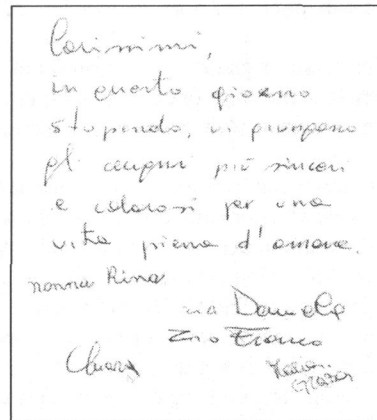 Carissimi,
in questo giorno
stupendo, vi giungano
gli auguri più sinceri
e calorosi per una
vita piena d'amore.
nonna Rina
zia Daniela
Zio Franco
Chiara